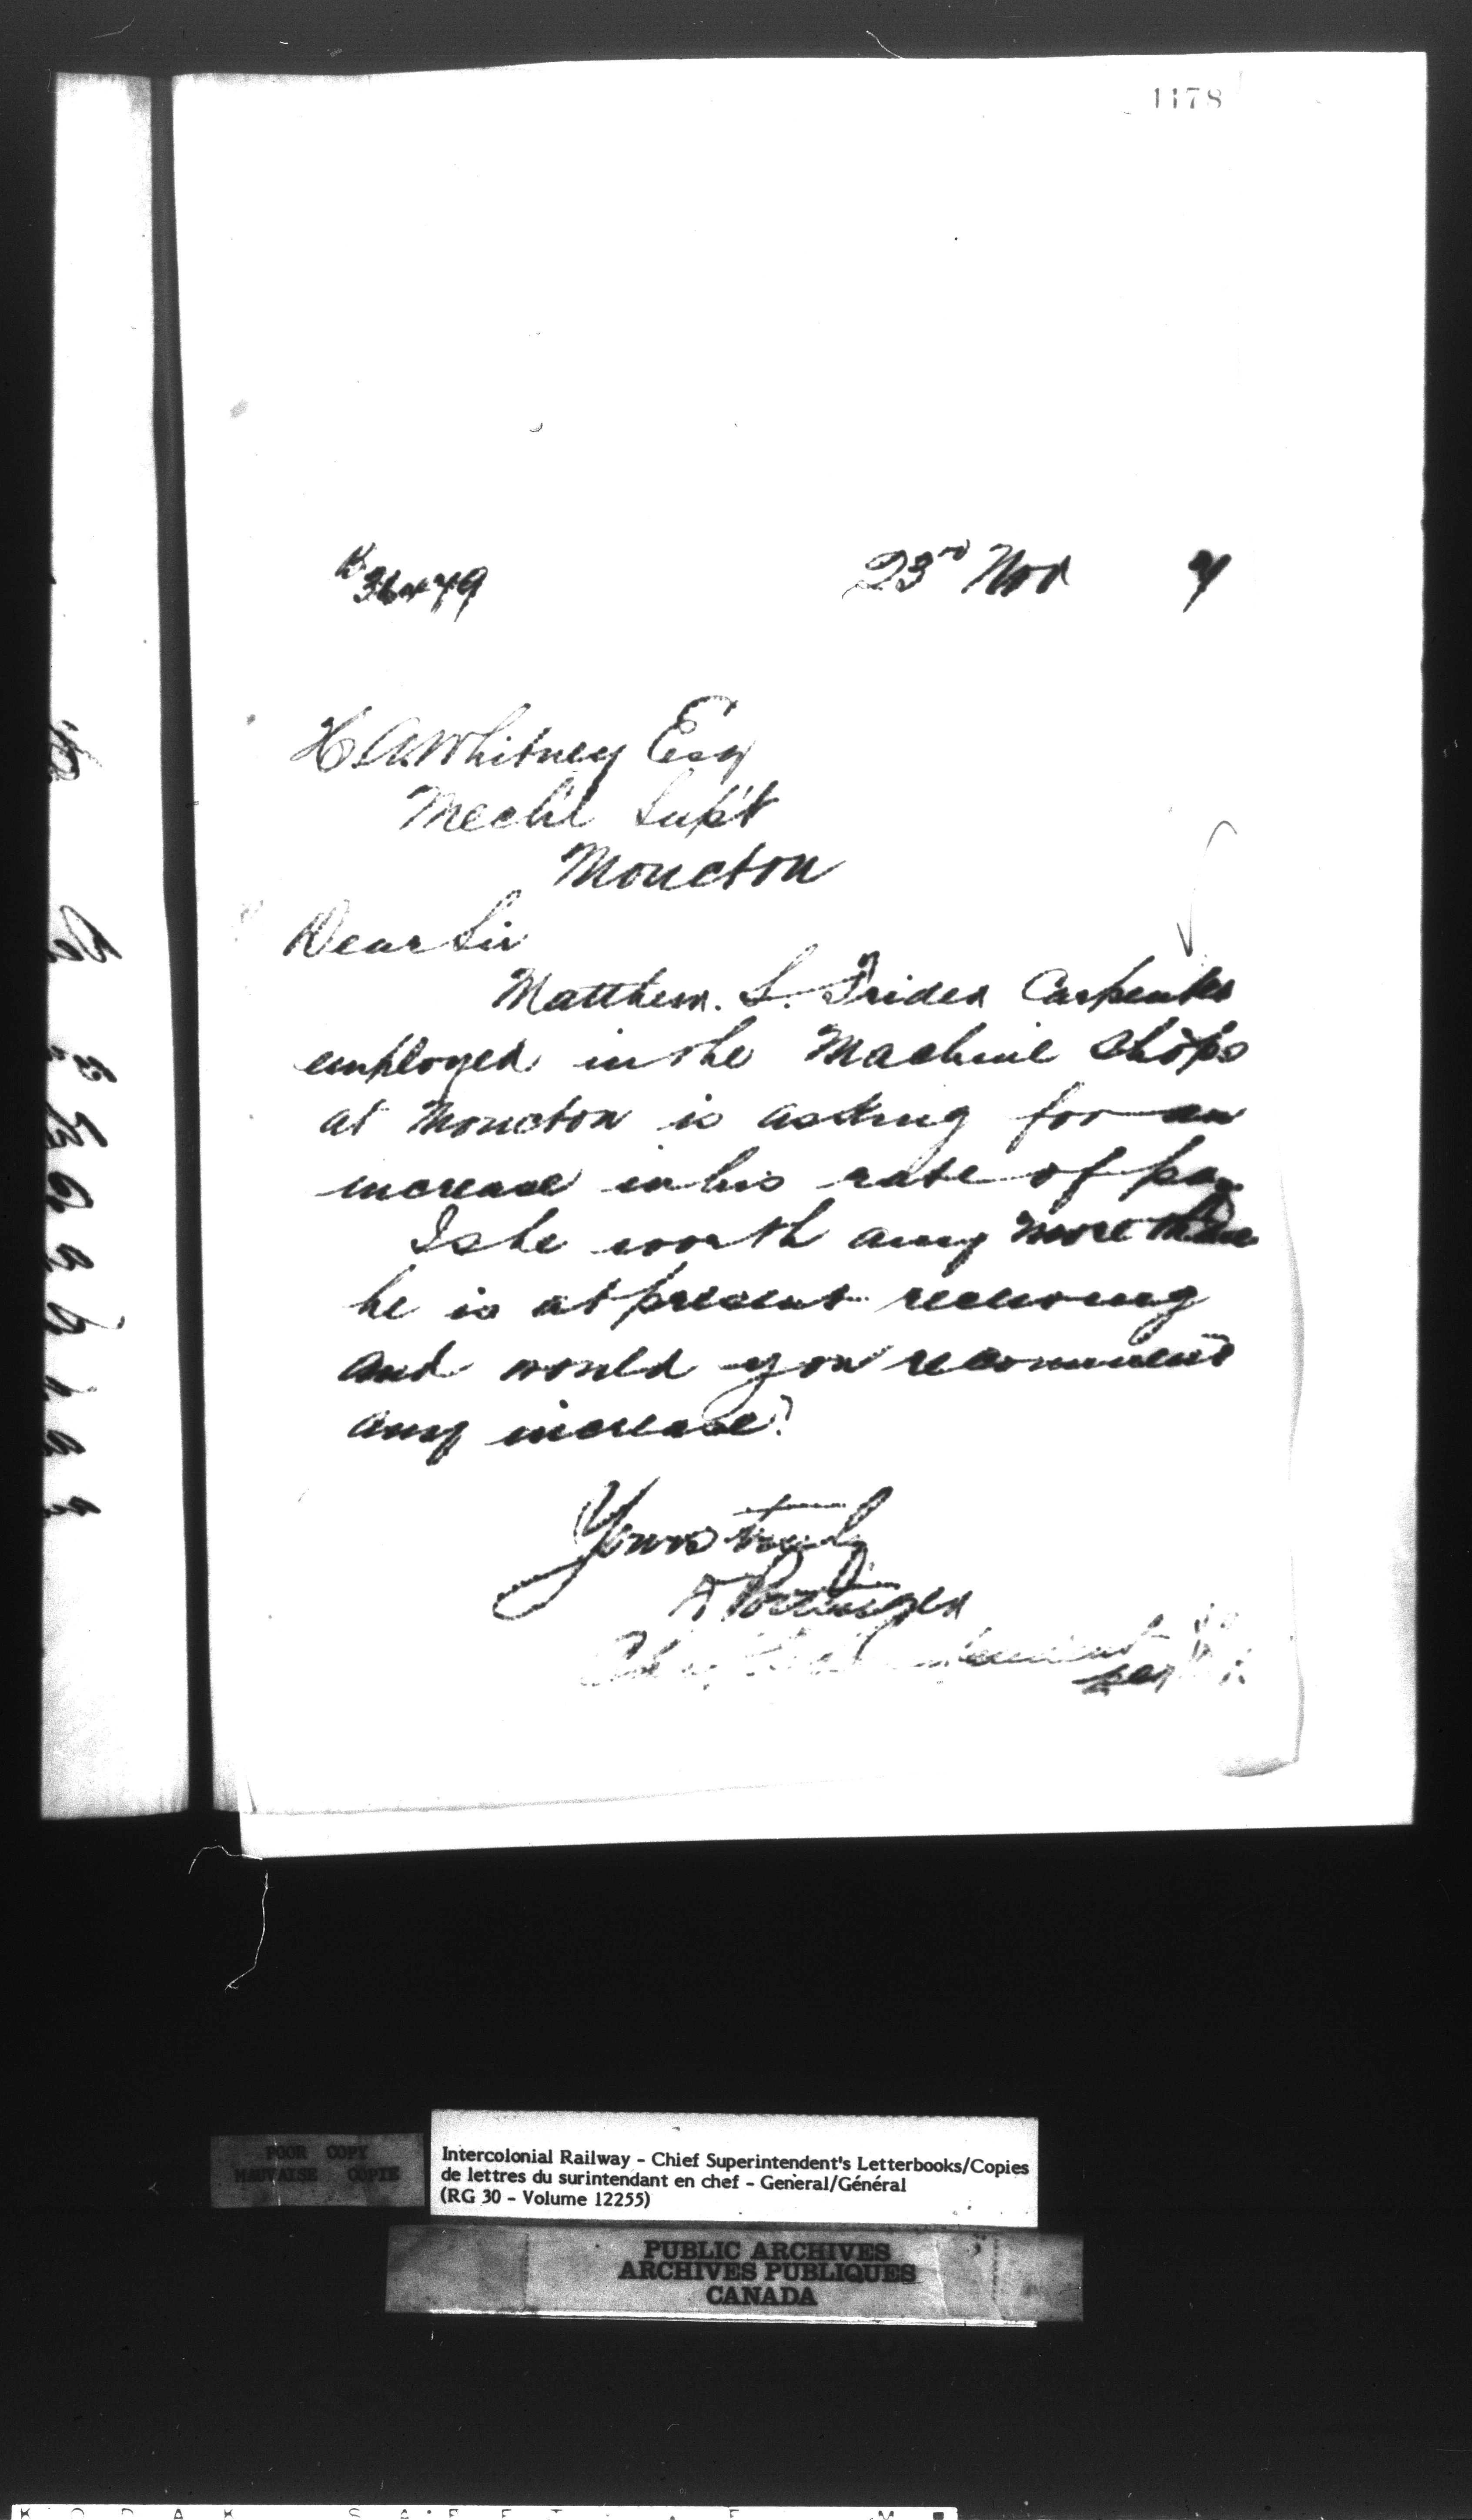 1178
23rd Nov
H. A. Whitney Esq
Mech'l Supt
Moncton
Dear Sir
Matthew. S. Carpenter
employed in the Machine Shops
at Moncton is asking for an
increase in his rate of pay.
Is he worth any more than
he is at present receiving
and would you recommend
any increase?
Yours truly
D Pottinger
per
POOR COPY
MAUVAISE COPIE
Intercolonial Railway - Chief Superintendent's Letterbooks/Copies
de lettres du surintendant en chef - General/Général
(RG 30 - Volume 12255)
PUBLIC ARCHIVES
ARCHIVES PUBLIQUES
CANADA